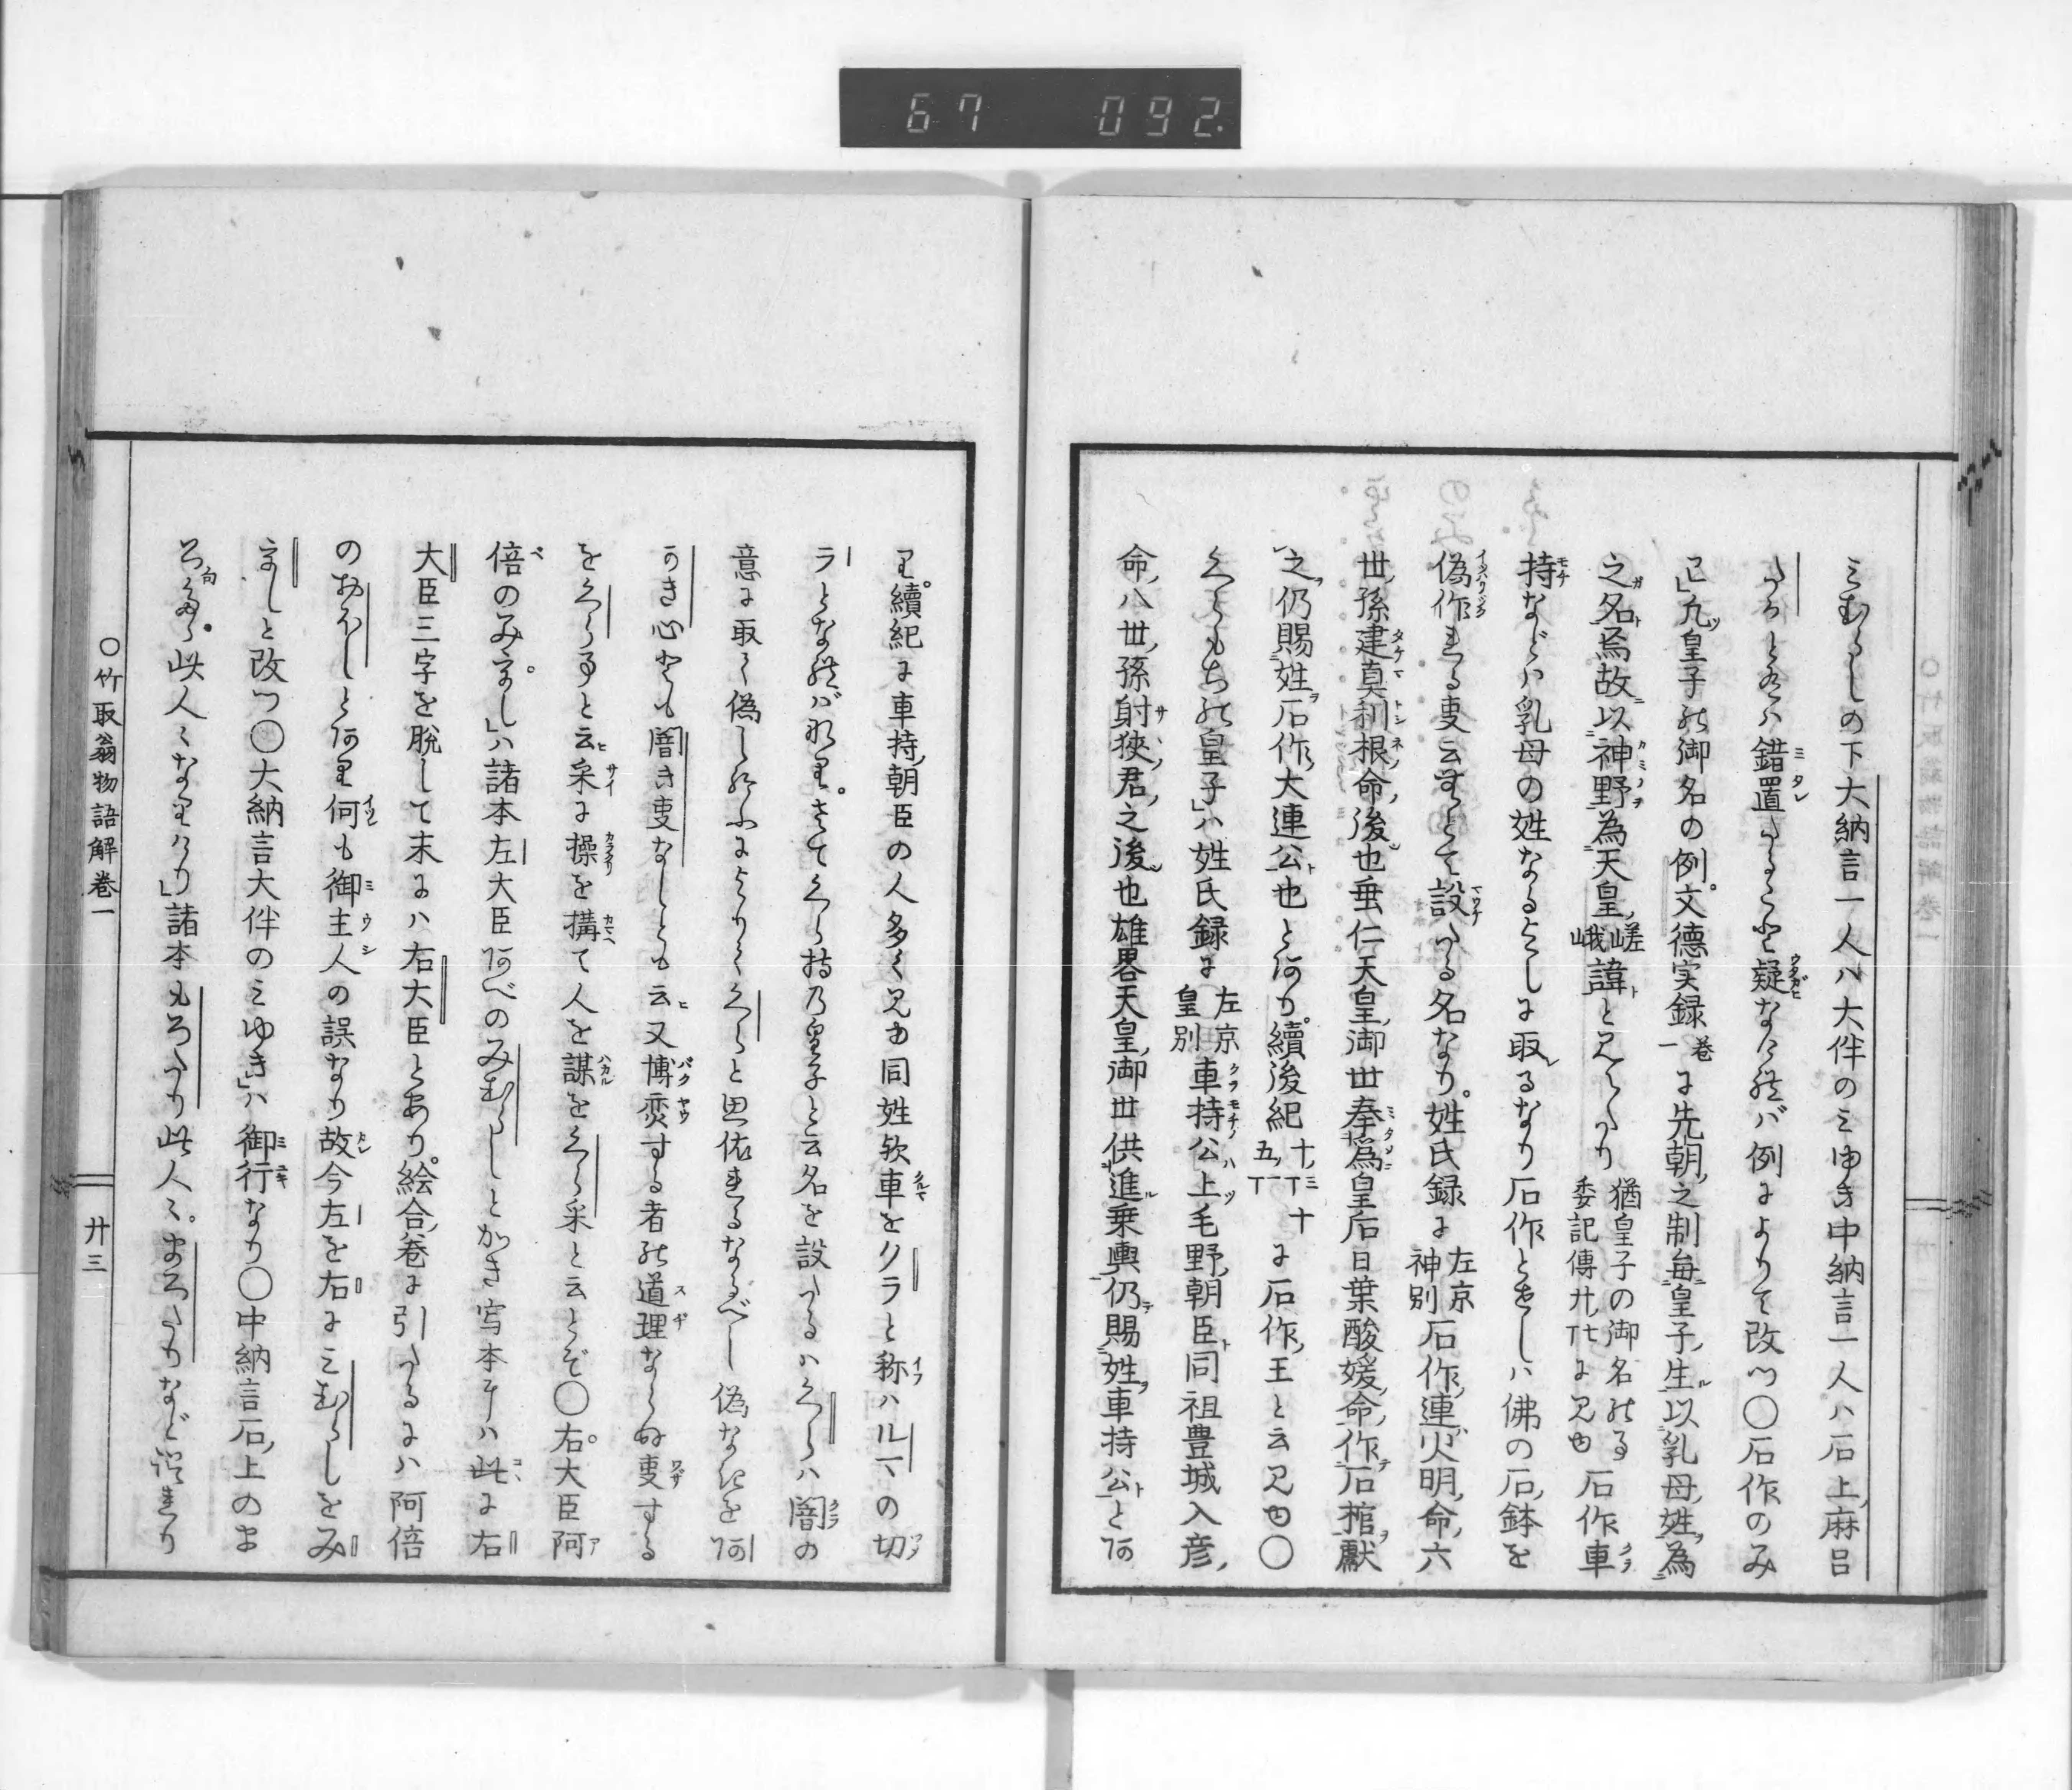 67 092.
みむらしの下大納言一人ハ大伴のミゆき中納言一人ハ石上麻呂
たりとあるハ錯置たること疑なけれバ例によりて改つ〇石作のみ
こ」凡皇子の御名の例文徳実録巻一に先朝之制毎皇子生以乳母姓為
之名焉故以神野為天皇嵯峨諱と見えたり猶皇子の御名の事委記傳廿丁七に見ゆ石作車
持などハ乳母の姓なるよしに取るなり石作とせしハ佛の石鉢を
偽作れる事云むとて設たる名なり姓氏録に左京神別石作連火明命六
世孫建真利根命後也垂仁天皇御世奉為皇后日葉酸媛命作石棺獻
之仍賜姓石作大連公也とあり續後紀十三丁十五丁に石作王と云見ゆ〇
くらもちの皇子」ハ姓氏録に左京皇別車持公上毛野朝臣同祖豊城入彦
命八世孫射狭君之後也雄畧天皇御世供進乗輿仍賜姓車持公とあ
り續紀に車持朝臣の人多く見ゆ同姓歟車をクラと称ハルマの切
ラとなれバなり。さてくら持乃皇子と云名を設たるハくらハ闇の
意に取て偽し給ふによりてくらと思依れるなるべし偽なきをあ
かき心とも闇き事なしとも云又博奕する者の道理ならぬ事する
をくら事と云采に操を搆て人を謀をくら采と云とぞ〇右大臣阿
倍のみむし」ハ諸本左大臣阿べのみむらしとかき写本にハ此に右
大臣三字を脱して末にハ右大臣とあり絵合巻に引たるにハ阿倍
のおほしとあり何も御主人の誤なり故今左を右にミむらしをみ
むしと改つ〇大納言大伴のミゆき」ハ御行なり〇中納言石上のま
ろたり此人〻なりけり」諸本もろたり此人〻。まろたりなど誤れり
〇竹取翁物語解巻一
廿三